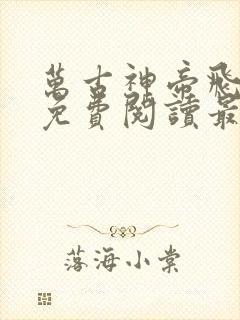 萬古神帝飛
免費閱讀最
落海小棠